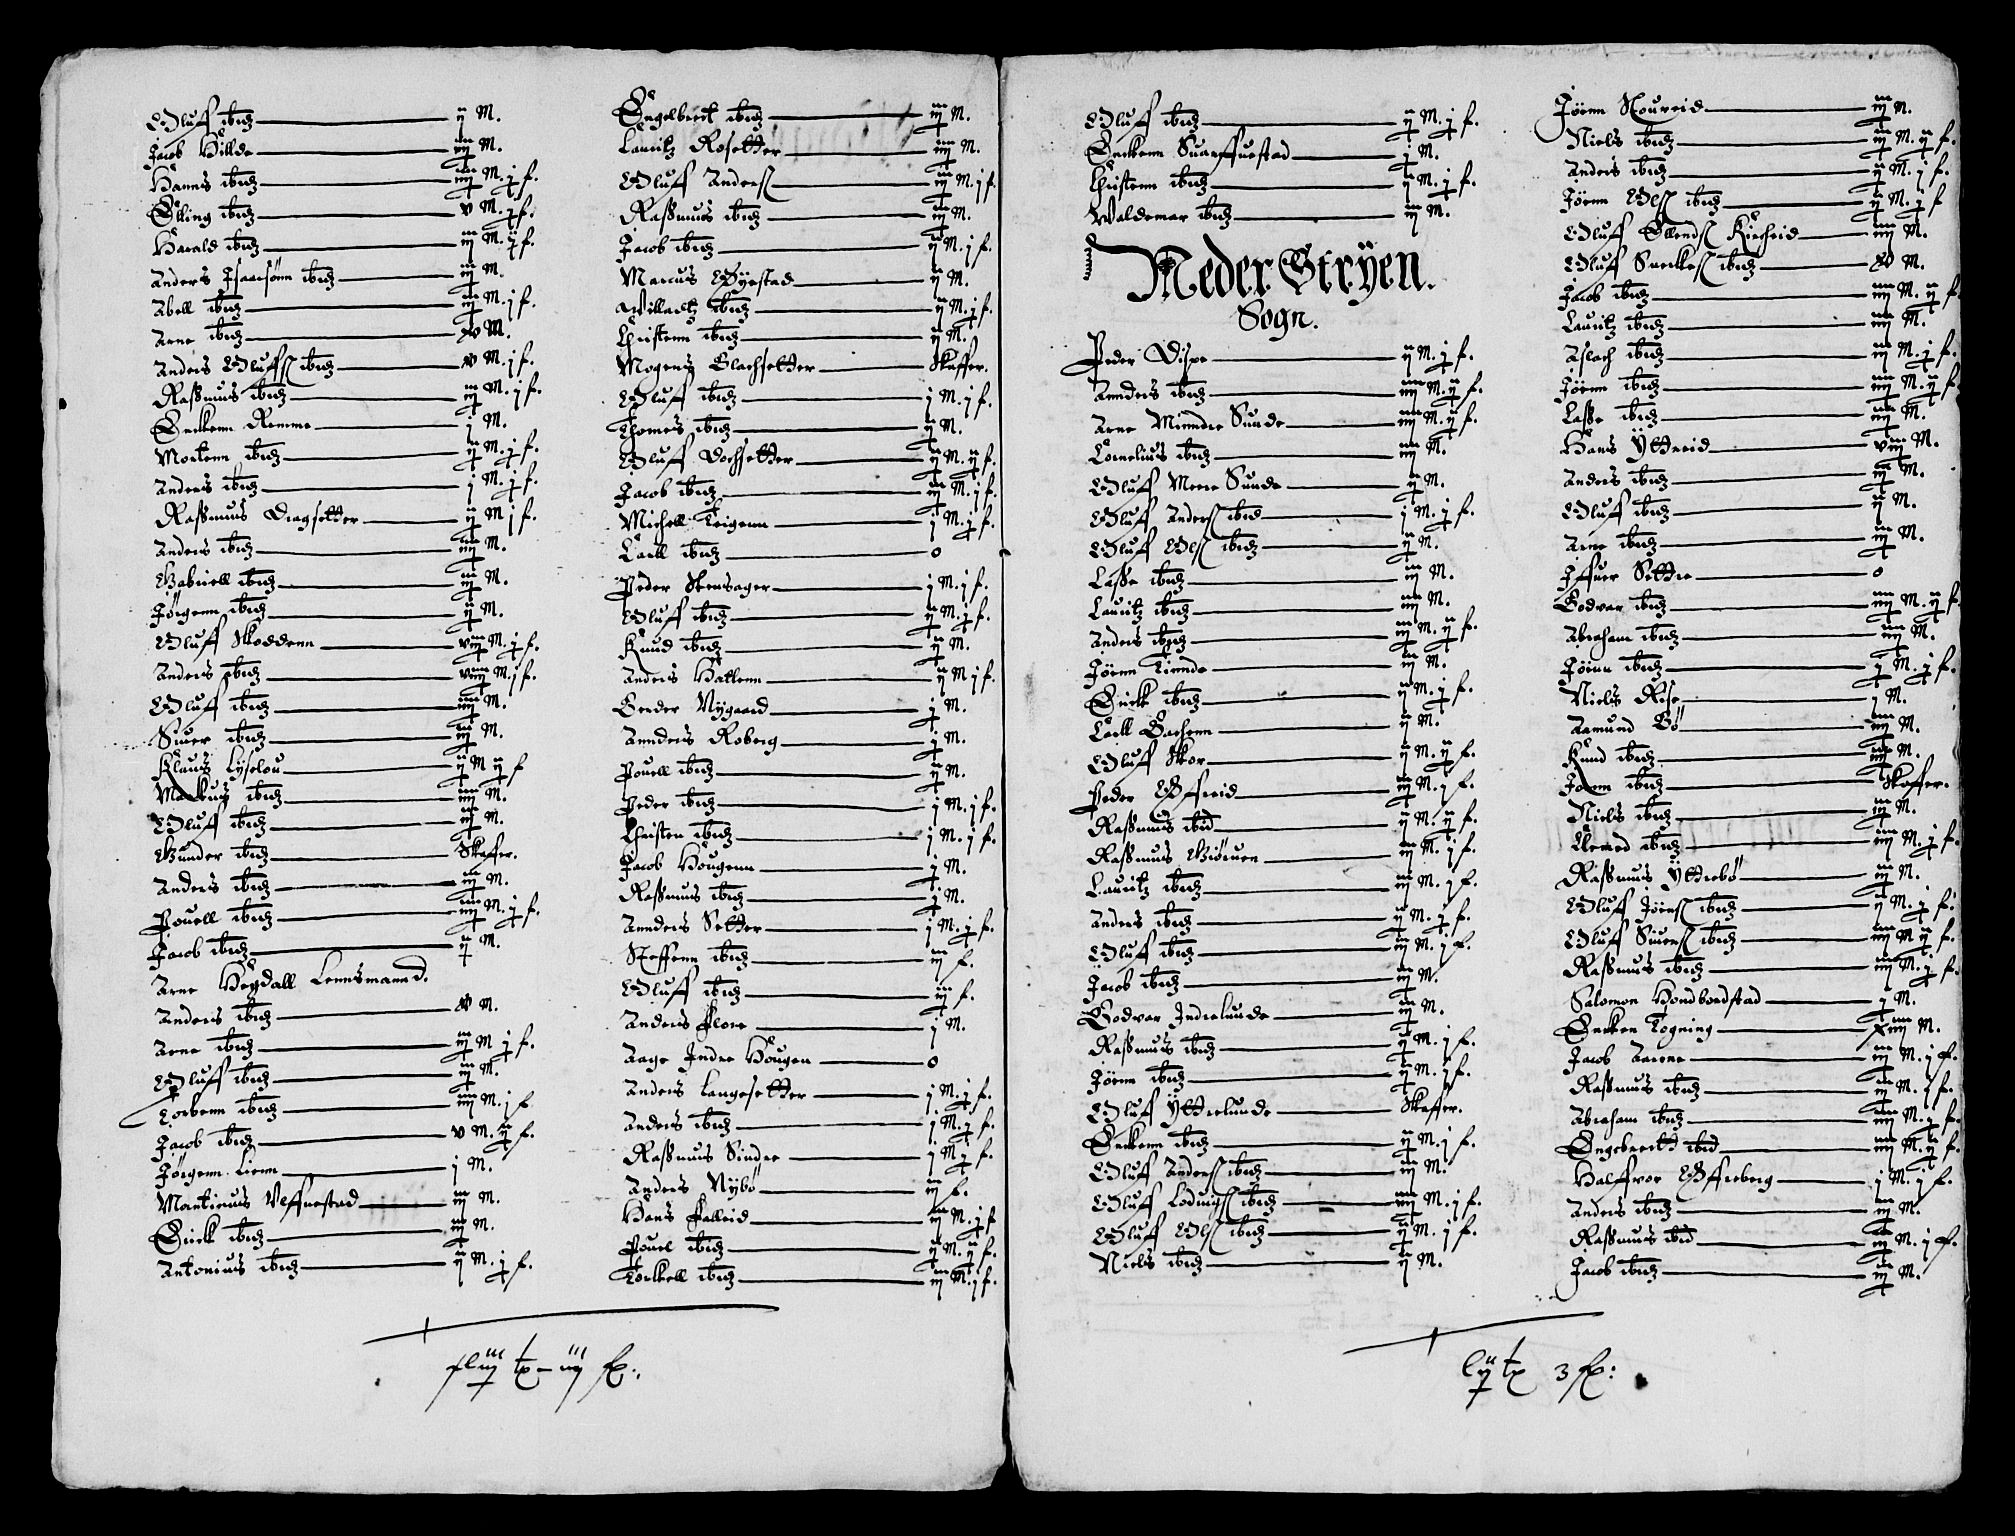 Oluff ibid ij M.
Jacob Hillde iij M.
Hanns ibid iij M. j f.
Elling ibid v M. j f.
Harald ibid iij M. ij f.
Anders Isaacsönn ibid iij M.
Abell ibid iij M. j f.
Arne ibid xv M.
Anders Oluffs ibid v M. j f.
Rassmus ibid iij M. j f.
Erikenn Remme j M.
Mortenn ibid ij M. j f.
Anders ibid j M. j f.
Rassmus Dragsetter ij M j f.
Anders ibid iiij M.
Gabriell ibid iij M.
Jörgenn ibid ij M.
Oluff Skoddenn vij M. j f.
Anders ibid viij M. j f.
Oluff ibid iiij M.
Siuer ibid iij M.
Klaus Lyslou ij M ij f
Markus ibid iiij M.
Oluff ibid iij M.
Gunder ibid Skaffer.
Anders ibid iij M.
Pouell ibid iiij M. j f.
Jacob ibid ij M.
Arne Hegdall Lennsmannd.
Anders ibid v M.
Arne ibid iij M j f.
Oluff ibid iij M.
Torbenn ibid iiij M. j f
Jacob ibid v M. ij f.
Jörgenn Lienn j M.
Martinus Ulffuestad iij M.
Erick ibid iij M.
Antonius ibid ij M. j f.
xlvij tx – iij sk:
Engelbrett ibid iij M.
Lauritz Rosetter iiij M.
Oluff Anders iij M. j f.
Rassmus ibid iij M.
Jacob ibid ij M. j f.
Marcus Öyestad ij M.
Willadtz ibid ij M. j f.
Christenn ibid ij M.
Mogens Slachsetter Skaffer.
Oluff ibid j M. j f.
Thomes ibid ij M.
Oluff Dochsetter ij M. ij f.
Jacob ibid iij M. j f.
Michell Teigenn j M. j f.
Carll ibid 0
Peder Stensager j M. j f.
Oluff ibid ij M. j f.
Knud ibid ij M.
Anders Hatlenn ij M j f.
Gerder Nygaard j M.
Annders Roberg j M.
Pouell ibid ij M.
Peder ibid j M. j f.
Christen ibid j M. j f.
Jacob Hougenn j M.
Rassmus ibid j M.
Annders Setter j M. j f.
Steffenn ibid iij f.
Oluff ibid iij f.
Anders Flore j M.
Aage Indre Hougen 0
Anders Langesetter j M. j f.
Anders ibid j M. j f.
Rassmus Sindre j M j f.
Anders Nybö iij f.
Hans Falleid iij M. j f
Pouel ibid ij M. ij f.
Torkell ibid iij M. j f.
Oluff ibid ij M. j f.
Erikenn Suarffuestad j M.
Christenn ibid ij M. j f.
Waldemar ibid iij M.
Neder Stryen.
Sogn.
Peder Dispe ij M. j f.
Annders ibid iiij M. ij f.
Arne Minndre Sunde iiij M. ij f.
Cornelius ibid iij M.
Oluff Mere Sunde ij M.
Oluff Anders ibid j M. j f.
Oluff Ols ibid ij M.
Lasse ibid iij M.
Lauritz ibid iiij M.
Anders ibid iij M. ij f.
Jörenn Tinnde iij M.
Erick ibid ij M. j f.
Carll Bachenn ij M.
Oluff Skor ij M. ij f.
Peder Öffreid iij M. j f.
Rassmus ibid ij M. ij f.
Rassmus Giöruen iij M. j f.
Lauritz ibid iij M. j f.
Anders ibid ij M. j f.
Oluff ibid iij M. j f.
Jacob ibid iij M.
Godvar Indrelunde iij M.
Rassmus ibid ij M. j f.
Jörenn ibid ij M. j f.
Oluff Yttrelunde Skaffer.
Erikenn ibid ij M. j f.
Oluff Anders ibid iij M.
Oluff Loduigs ibid iiij M. j f.
Oluff Ols ibid ij M. j f.
Niels ibid ij M.
Jörenn Stoureid iij M.
Niels ibid iij M. ij f.
Anders ibid ij M. j f.
Jörenn Ols ibid ij M. j f
Oluff Ellends Kircheid iiij M.
Oluff Sueckes ibid xv M.
Jacob ibid iiij M. ij f.
Lauritz ibid iiij M.
Aslach ibid iij M. j f.
Jörenn ibid iiij M. ij f.
Lasse ibid iiij M.
Hans Yttreid viij M.
Anders ibid iij M.
Oluff ibid ij M.
Arne ibid iij M.
Iffuer Settre 0
Godvar ibid iiij M. ij f.
Abraham ibid iiij M.
Jörenn ibid j M. j f.
Niels Rise j M.
Aamund Bö iiij M.
Knud ibid iij M.
Jörenn ibid Skaffer.
Niels ibid iij M.
Amed ibid iiij M. j f.
Rassmus Yttrebö iij M.
Oluff Jörens ibid ij M. j f.
Oluff Siuers ibid iiij M ij f.
Rassmus ibid iij M. j f.
Salomon Hondbordstad j M.
Ericken Togning xiij M.
Jacob Aarnes iij M. j f.
Rassmus ibid iij M. j f.
Abraham ibid iiij M. j f.
Engebrett ibid iiij M. ij f.
Halffvor Öffreberg j M. j f.
Anders ibid iij M.
Rassmus ibid iij M. j f.
Jacob ibid iij M.
lij tx 3 sk: